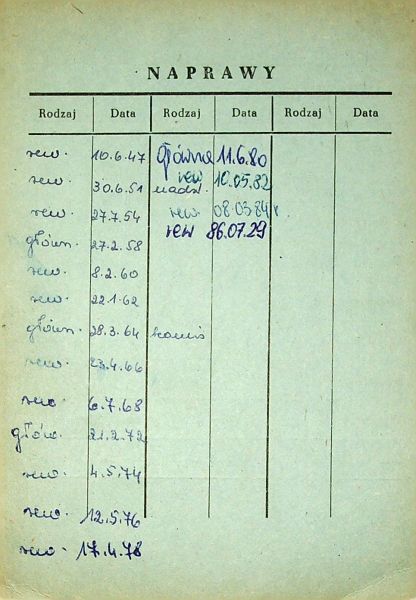 NAPRAWY
Rodzaj Data Rodzaj Data Rodzaj Data
rew. 10.6.47 główna 11.6.80
rew. 30.6.51 nadzw. rew 10.05.82
rew. 27.7.54 rew 08.03.84 r.
główn. 27.2.58 rew 86.07.29
rew. 8.2.60
rew. 22.1.62
główn. 28.3.64
rew. 23.4.66
rew. 6.7.68
główn. 21.2.72
rew. 4.5.74
rew. 12.5.76
rew. 17.4.78